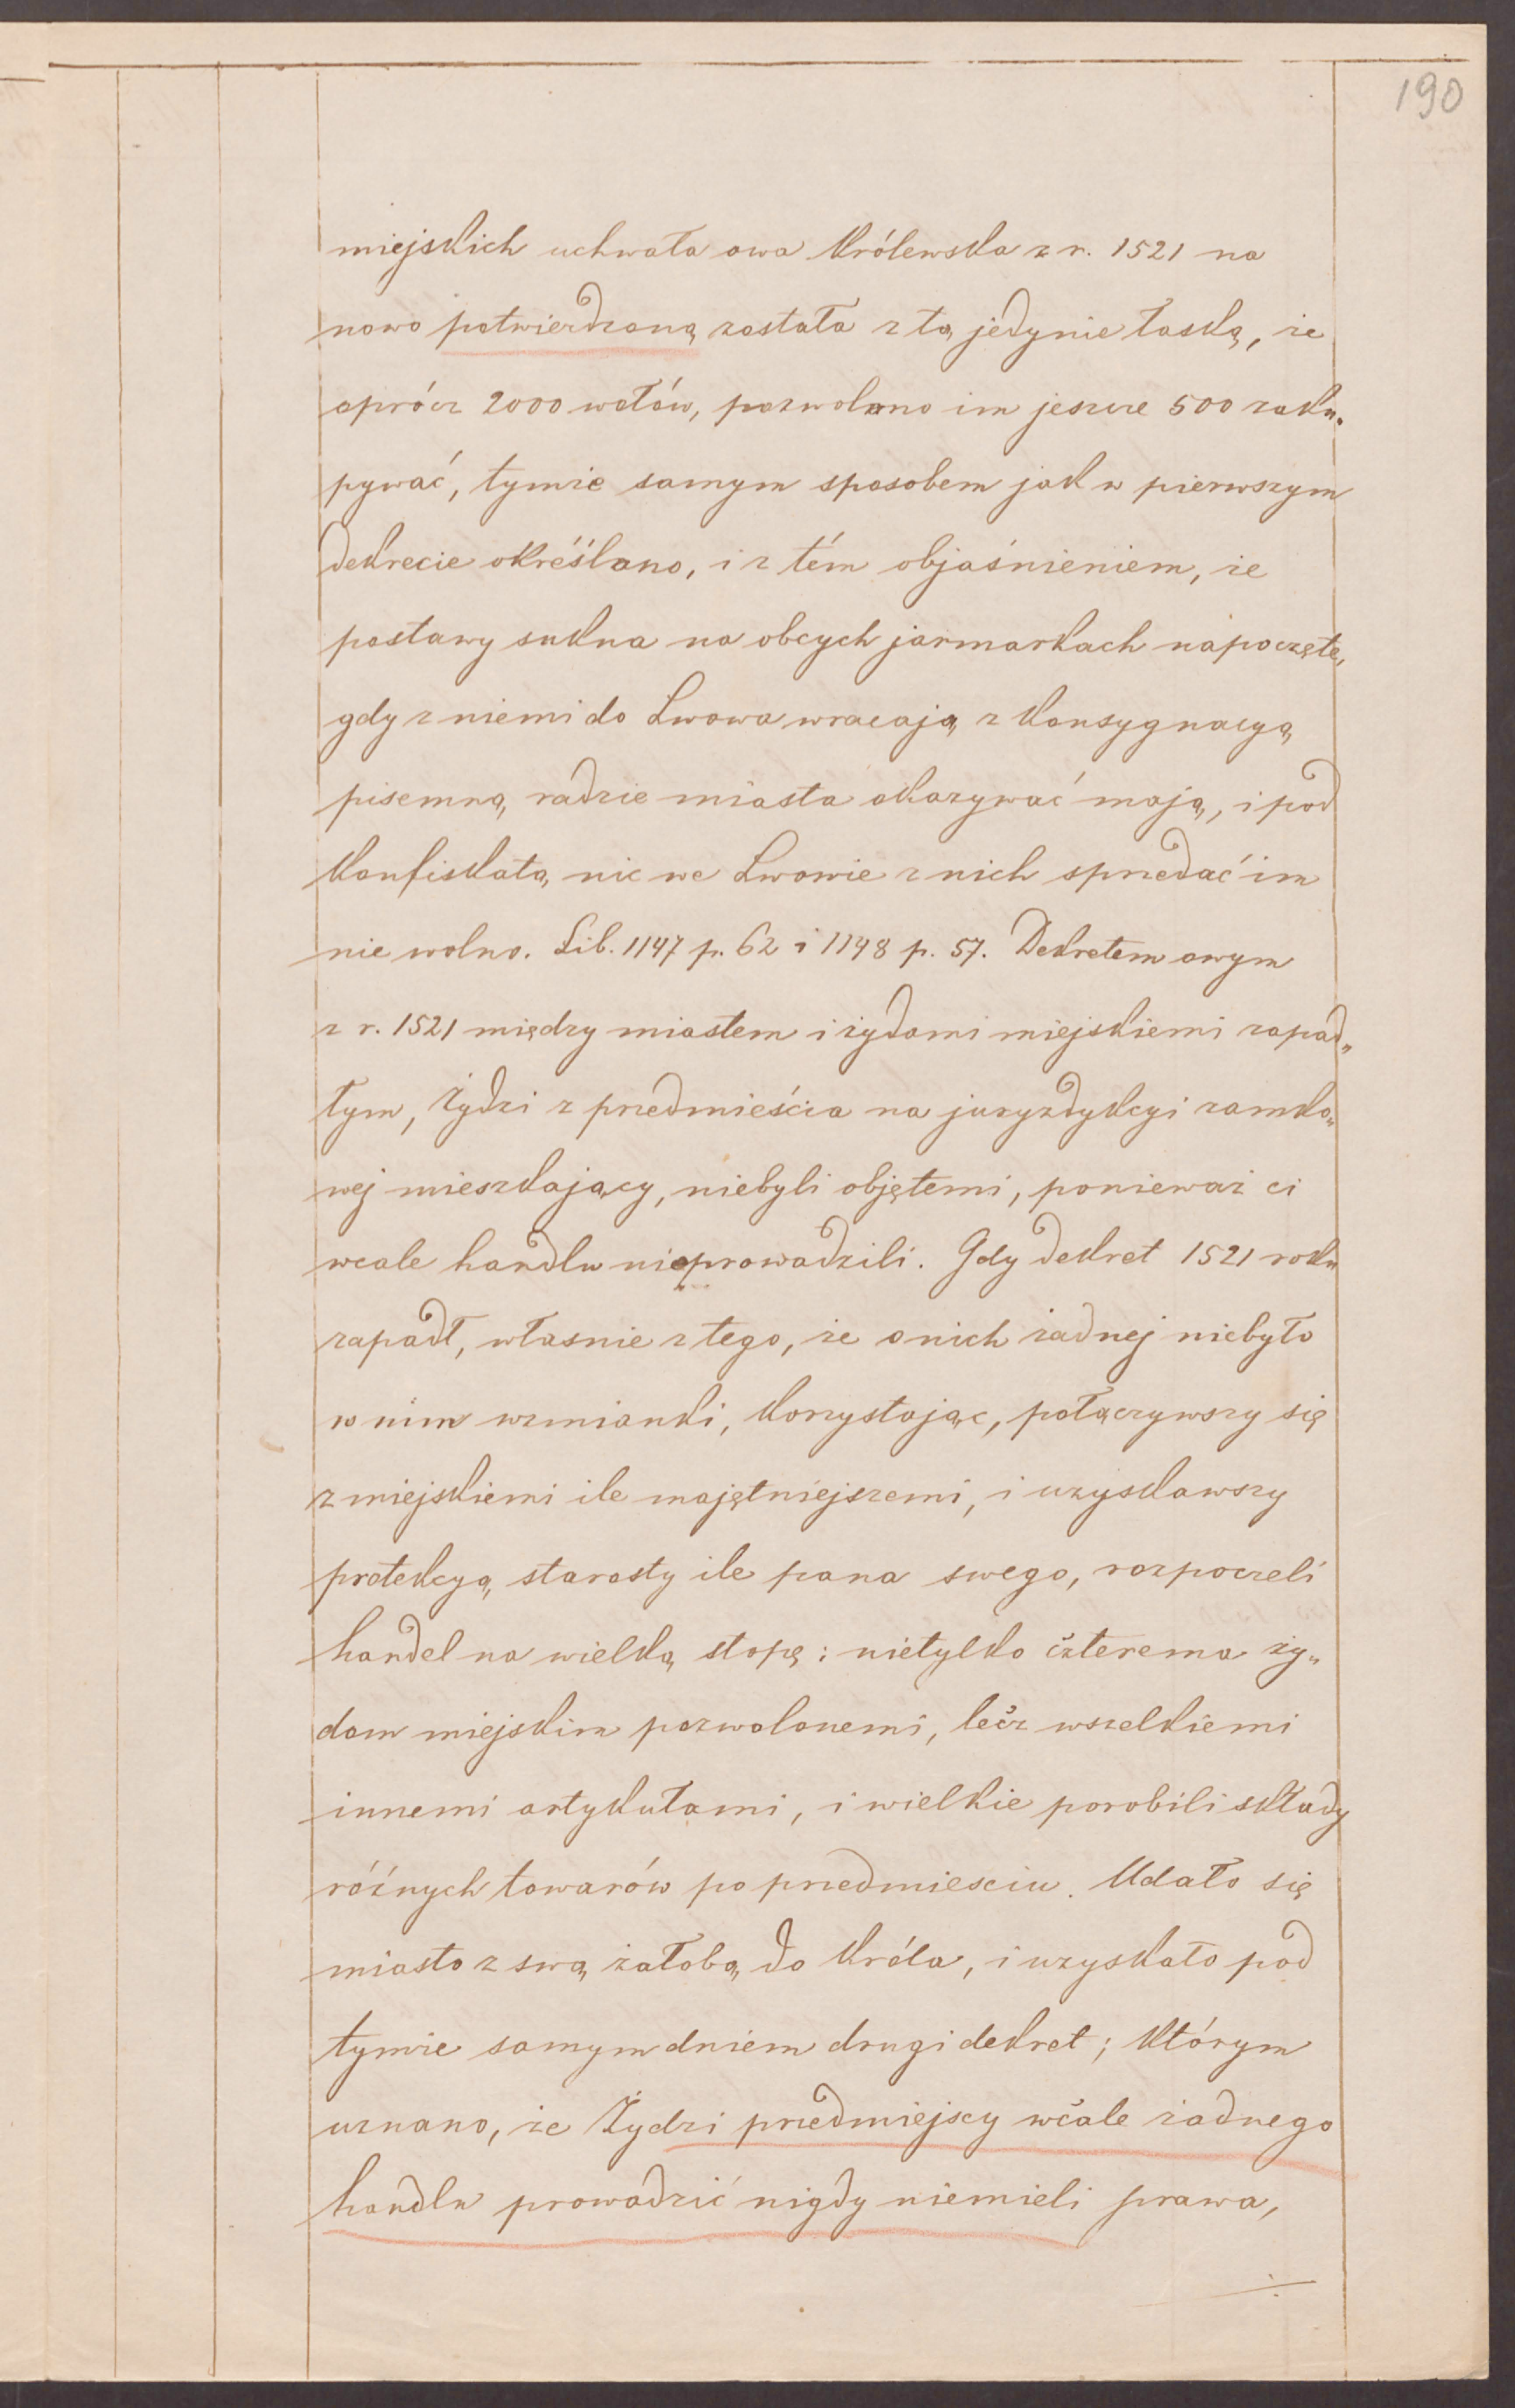 190
miejskich uchwała owa królewska z r. 1521 na
nowo potwierdzoną została z tą jedynie łaską, że
oprócz 2000 wołów, pozwolono im jeszcze 500 zaku„
pywać, tymże samym sposobem jak w pierwszym
dekrecie określono, i z tém objaśnieniem, że
postawy sukna na obcych jarmarkach napoczęte,
gdy z niemi do Lwowa wracają z konsygnacyą
pisemną, radzie miasta okazywać mają, i pod
konfiskatą, nic we Lwowie z nich sprzedać im
nie wolno. Lib. 1147 p. 62 i 1148 p. 57. Dekretem owym
z r. 1521 między miastem i żydami miejskiemi zapad„
łym, Żydzi z przedmieścia na juryzdykcyi zamko„
wej mieszkający, niebyli objętemi, ponieważ ci
wcale handlu nieprowadzili. Gdy dekret 1521 roku
zapadł, własnie z tego, że o nich żadnej niebyło
w nim wzmianki, korzystając, połączywszy się
z miejskiemi ile majętniejszemi, i uzyskawszy
protekcyą starosty ile pana swego, rozpoczeli
handel na wielką stopę: nietylko czterema ży„
dom miejskim pozwolonemi, lecz wszelkiemi
innemi artykułami, i wielkie porobili składy
różnych towarów po przedmiesciu. Udało się
miasto z swą żałobą do króla, i uzyskało pod
tymże samym dniem drugi dekret; którym
uznano, że Żydzi przedmiejscy wcale żadnego
handlu prowadzić nigdy niemieli prawa,